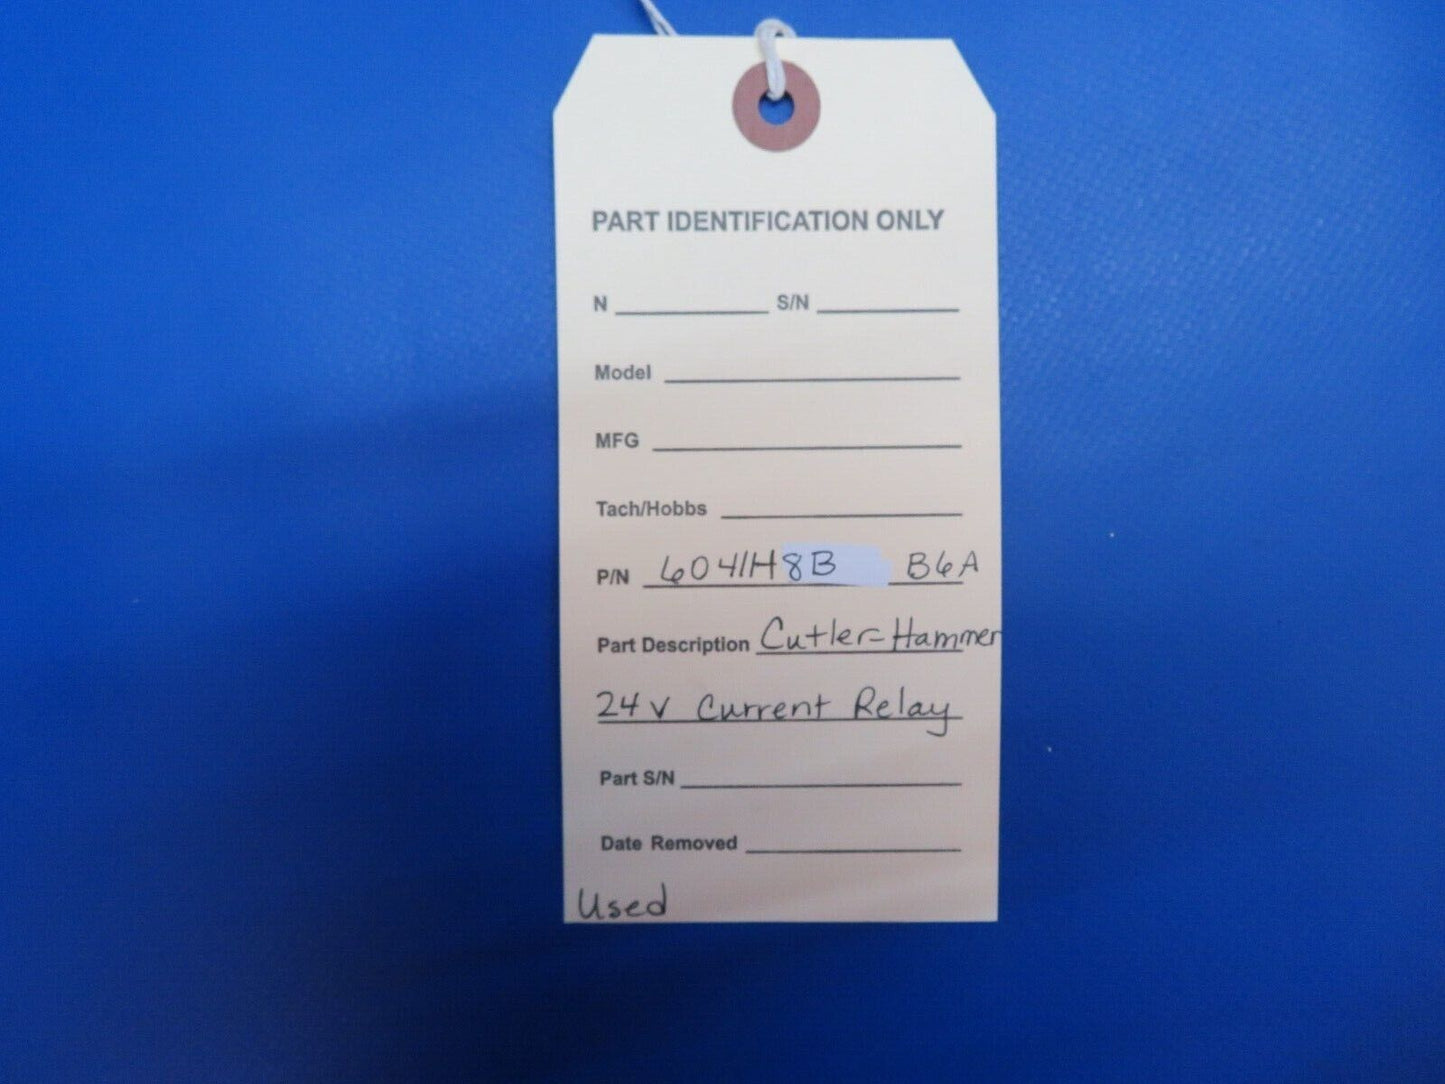 PART IDENTIFICATION ONLY
N S/N
Model
MFG
Tach/Hobbs
P/N 6041H8B B6A
Part Description Cutler-Hammer
24v Current Relay
Part S/N
Date Removed
Used